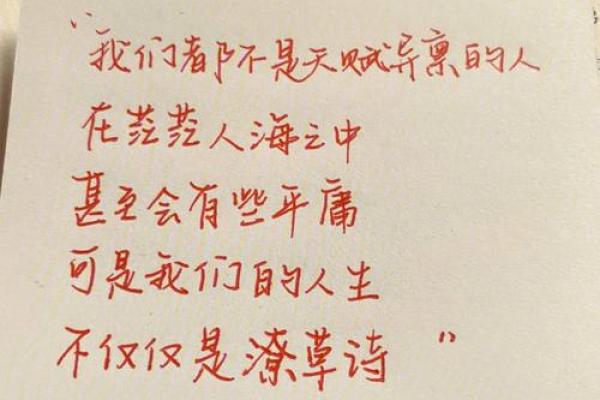 "我们都不是天赋异禀的人
在茫茫人海之中
甚至会有些平庸
可是我们的人生
不仅仅是潦草诗"